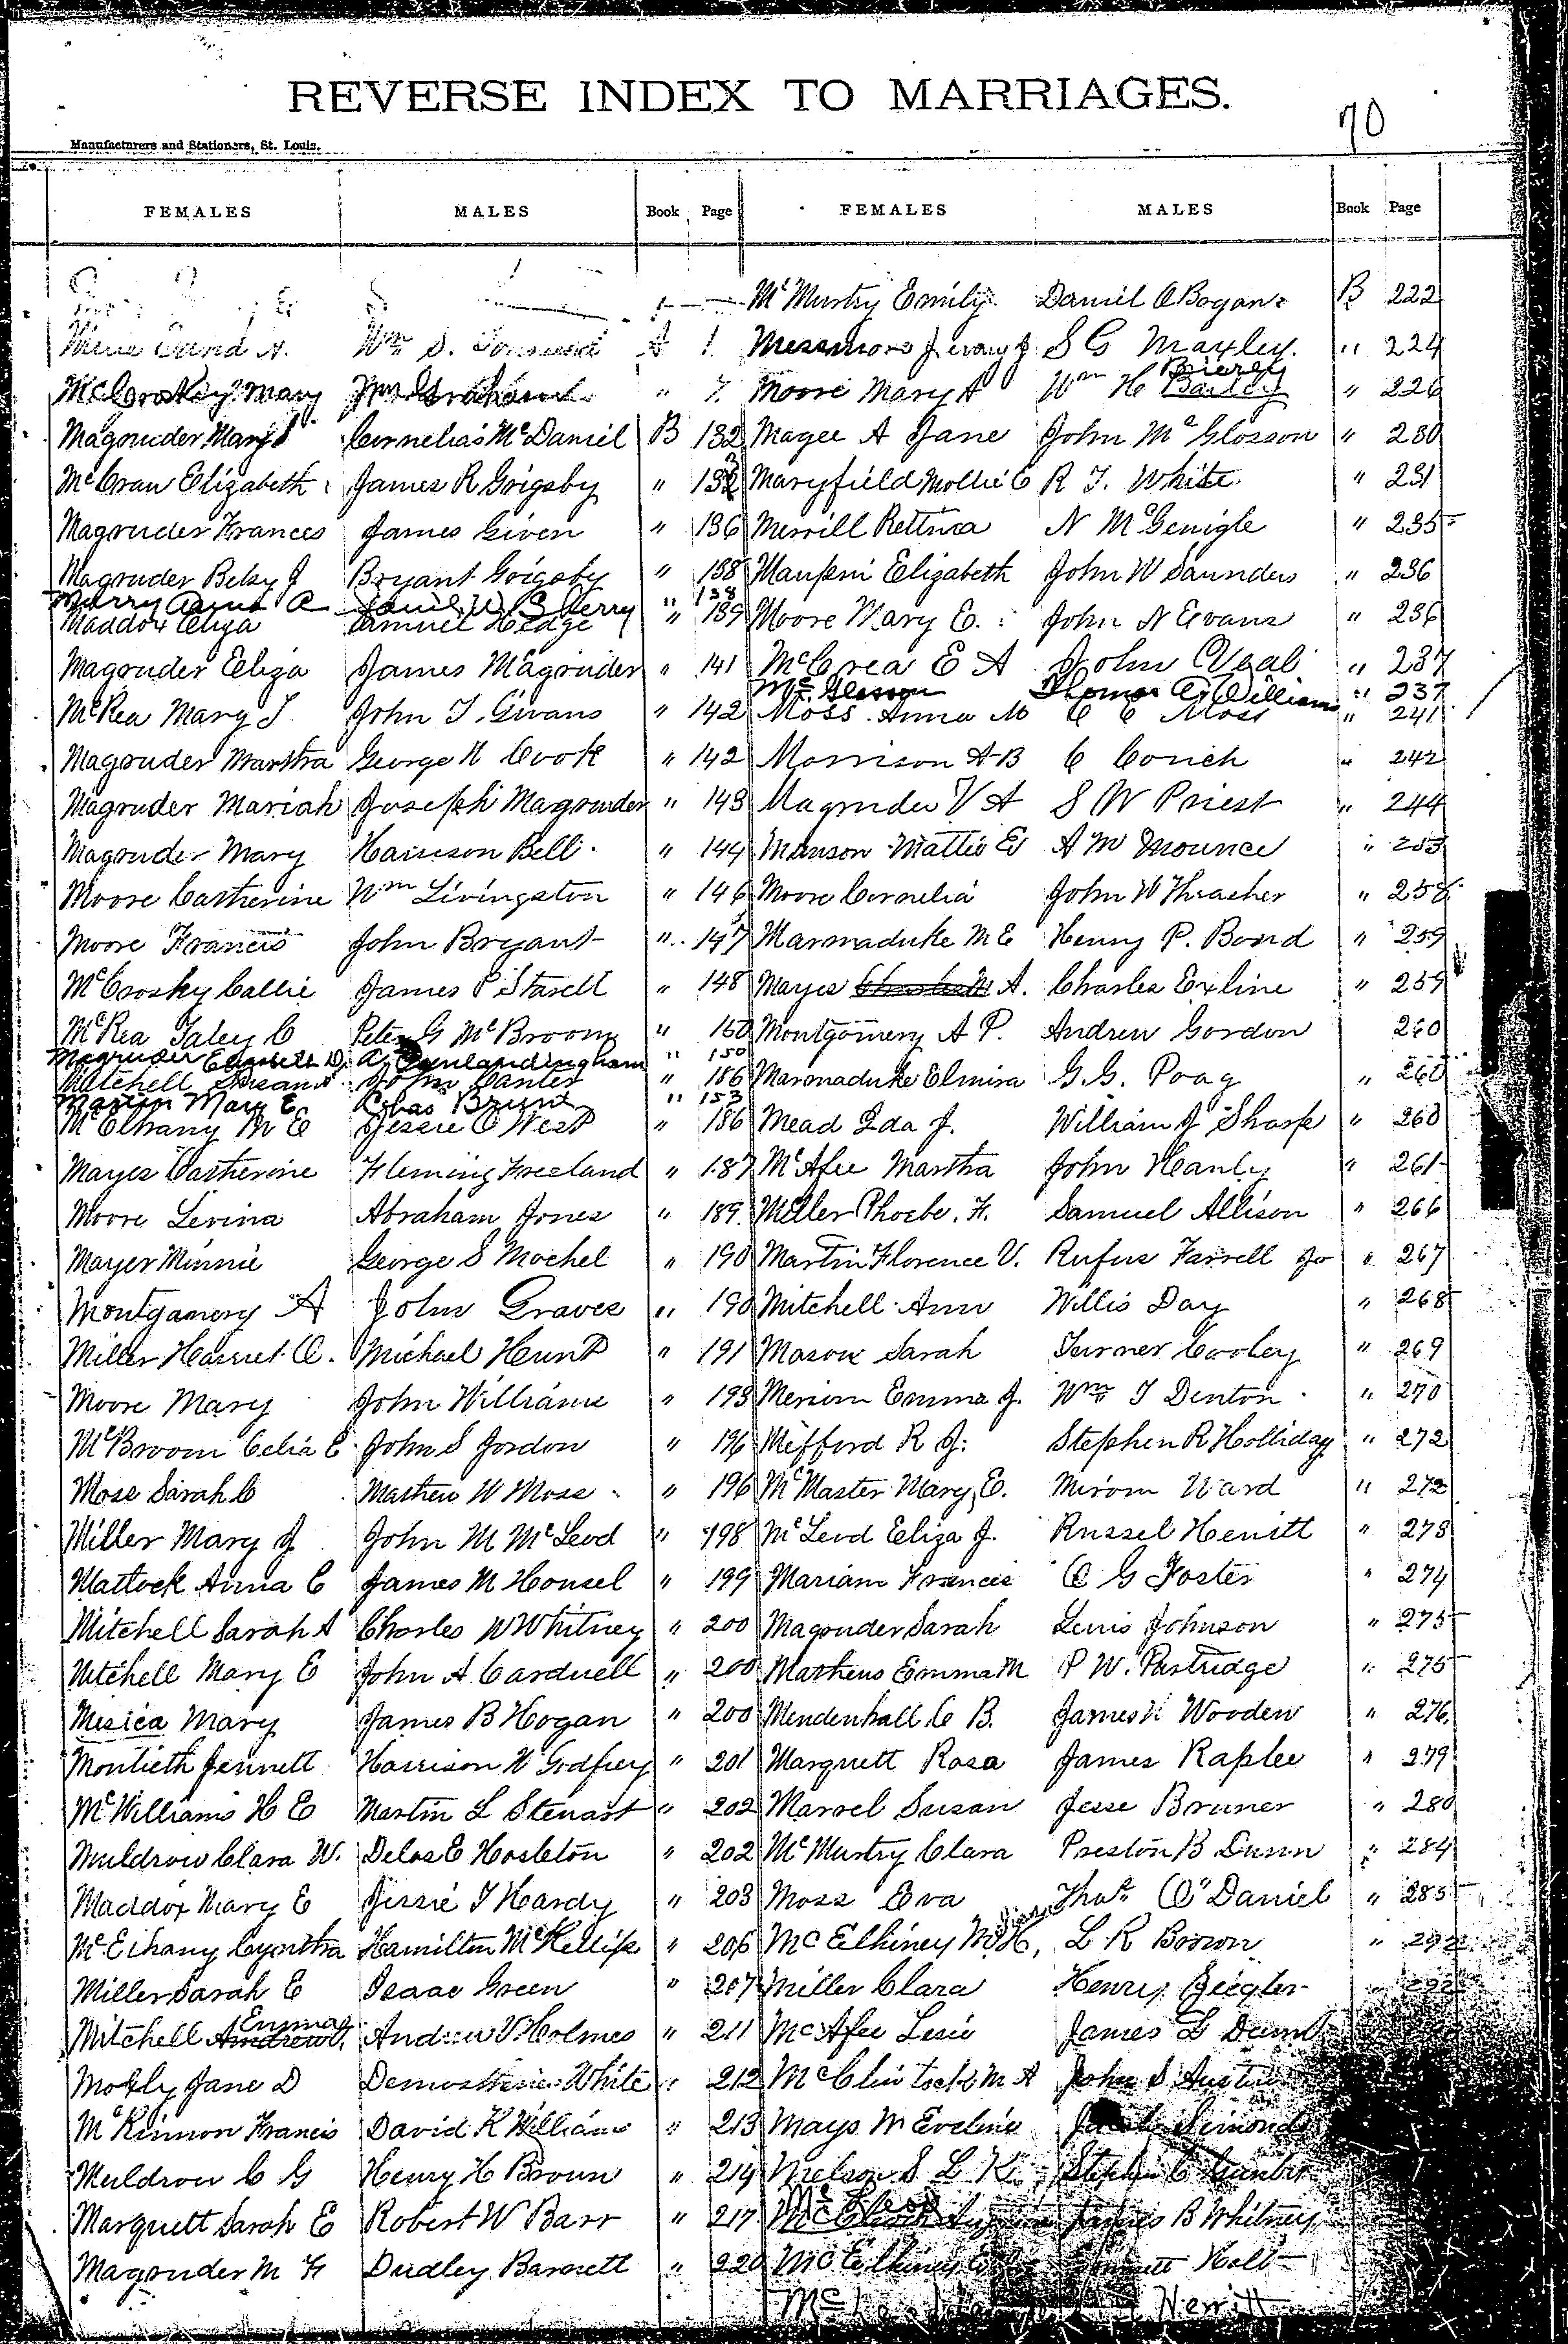 REVERSE INDEX TO MARRIAGES.
70
Manufacturers and Stationers, St. Louis.
FEMALES MALES Book Page
Wm S. A 1
Mary Graham " 7
Magruder Mary Cornelias McDaniel B 132
McCran Elizabeth James R Grigsby " 132
Magruder Frances James Given " 136
Magruder Betsy J Bryant Grigsby " 138
" 138
Maddox Eliza Samuel Hedge " 139
Magruder Eliza James Magruder " 141
McRea Mary J John T. Givans " 142
Magruder Martha George W Cook " 142
Magruder Mariah Joseph Magruder " 143
Magruder Mary Harrison Bell " 144
Moore Catherine Wm Livingston " 146
Moore Francis John Bryant " 147
McCrosky Callie James P Starell " 148
McRea Taley C Peter G McBroom " 150
Magruder A Vanlandingham " 150
Mitchell Susan A John Canter " 186
Martin Mary E. Brunt " 153
McElhany M E Jessie C West " 186
Mayes Catherine Fleming Freeland " 187
Moore Levina Abraham Jones " 189
Mayer Minnie George S Mochel " 190
Montgamery A John Graves " 190
Miller Harriet C. Michael Hunt " 191
Moore Mary John Williams " 193
McBroom Celia E John S Jordon " 196
Moss Sarah C Mathew W Moss " 196
Miller Mary J John M McLeod " 198
Matlock Anna C James M Housel " 199
Mitchell Sarah A Charles W Whitney " 200
Mitchell Mary E John A Cardwell " 200
Mesica Mary James B Hogan " 200
Montieth Jennett Harrison W Godfrey " 201
McWilliams H E Martin L Stewart " 202
Muldrow Clara W. Delos E Hasleton " 202
Maddox Mary E Jessie T Hardy " 203
McElhany Cyntha Hamilton McKillip " 206
Miller Sarah E Isaac Green " 207
Mitchell Emma Andrew V Holmes " 211
Jane D White " 212
McKinnon Francis David K Williams " 213
Muldrow C G Henry H Brown " 214
Marquett Sarah E Robert W Barr " 217
Magruder M F Dudley Barnett " 220
FEMALES MALES Book Page
McMurtry Emily Daniel O Bogan B 222
S G Maxley " 224
Moore Mary A Wm H Brierly " 226
Magee A Jane John McGlosson " 230
Maryfield Mollie E R T. White " 231
Merrill Rettura N McGenigle " 235
Maupin Elizabeth John W Saunders " 236
Moore Mary E. John N Evans " 236
McCrea E A John Veal " 237
McGlosson Thomas A Williams " 237
Moss Anna M C C Moss " 241
Morrison A B C Couch " 242
Magruder V A S W Priest " 244
Manson Mattie E A M Mounce " 253
Moore Cornelia John W Thrasher " 258
Marmaduke M E Henry P. Bond " 259
Mayes A. Charles Exline " 259
Montgomery A P. Andrew Gordon 260
Marmaduke Elmira G. G. Poag " 260
Mead Ida J. William J Sharp " 260
McAfee Martha John Hanly " 261
Miller Phoebe. F. Samuel Allison " 266
Martin Florence V. Rufus Farrell Jr " 267
Mitchell Ann Willis Day " 268
Mason Sarah Turner Cooley " 269
Emma J. Wm T Denton " 270
Mefford R J. Stephen R Holliday " 272
McMaster Mary, E. Mirom Ward " 272
McLeod Eliza J. Russel Hewitt " 273
Mariam Francis C G Foster " 274
Magruder Sarah Lewis Johnson " 275
Mathews Emma M P W. Partridge " 275
Mendenhall C B. James Wooden " 276
Marquett Rosa James Raplee " 279
Marrel Susan Jesse Bruner " 280
McMurtry Clara Preston B Dunn " 284
Moss Eva Thos O Daniel " 285
McElhiney L R Brown " 292
Miller Clara Henry Zeigler
McAfee Lesie James Dunn
McClintock M A John S Austin
Mays M Eveline Simonds
Nelson S L K. Stephen C Gunter
McLeod James B Whitney
McElhiney Holt